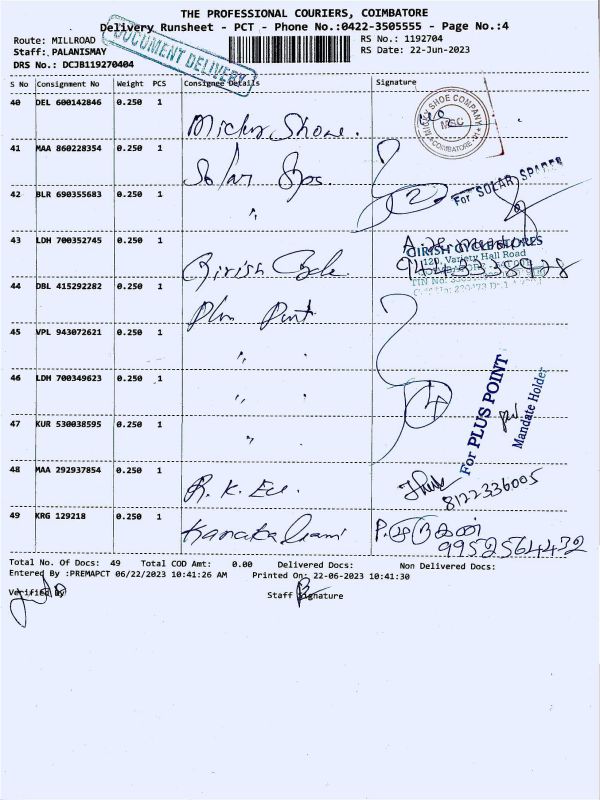 THE PROFESSIONAL COURIERS, COIMBATORE
Delivery Runsheet - PCT - Phone No.:0422-3505555 - Page No.:4
Route: MILLROAD
RS No.: 1192704
Staff: PALANISMAY
RS Date: 22-Jun-2023
DRS No.: DCJB119270404
DOCUMENT DELIVERY
S No Consignment No Weight PCS Consignee Details Signature
40 DEL 600142846 0.250 1
MICKY SHOE COMPANY
MSC
COIMBATORE
41 MAA 860228354 0.250 1
Solar Sps.
42 BLR 690355683 0.250 1
〃
2
For SOLAR SPARES
43 LDH 700352745 0.250 1
Girish Cycle
GIRISH CYCLE STORES
120, Variety Hall Road
44 DBL 415292282 0.250 1
Plus Point
45 VPL 943072621 0.250 1
〃
46 LDH 700349623 0.250 1
〃
4
For PLUS POINT
Mandate Holder
47 KUR 530038595 0.250 1
〃
48 MAA 292937854 0.250 1
R. K.
8122336005
49 KRG 129218 0.250 1
P.முருகன்
9952564432
Total No. Of Docs: 49 Total COD Amt: 0.00 Delivered Docs: Non Delivered Docs:
Entered By :PREMAPCT 06/22/2023 10:41:26 AM Printed On: 22-06-2023 10:41:30
Verified By
Staff Signature